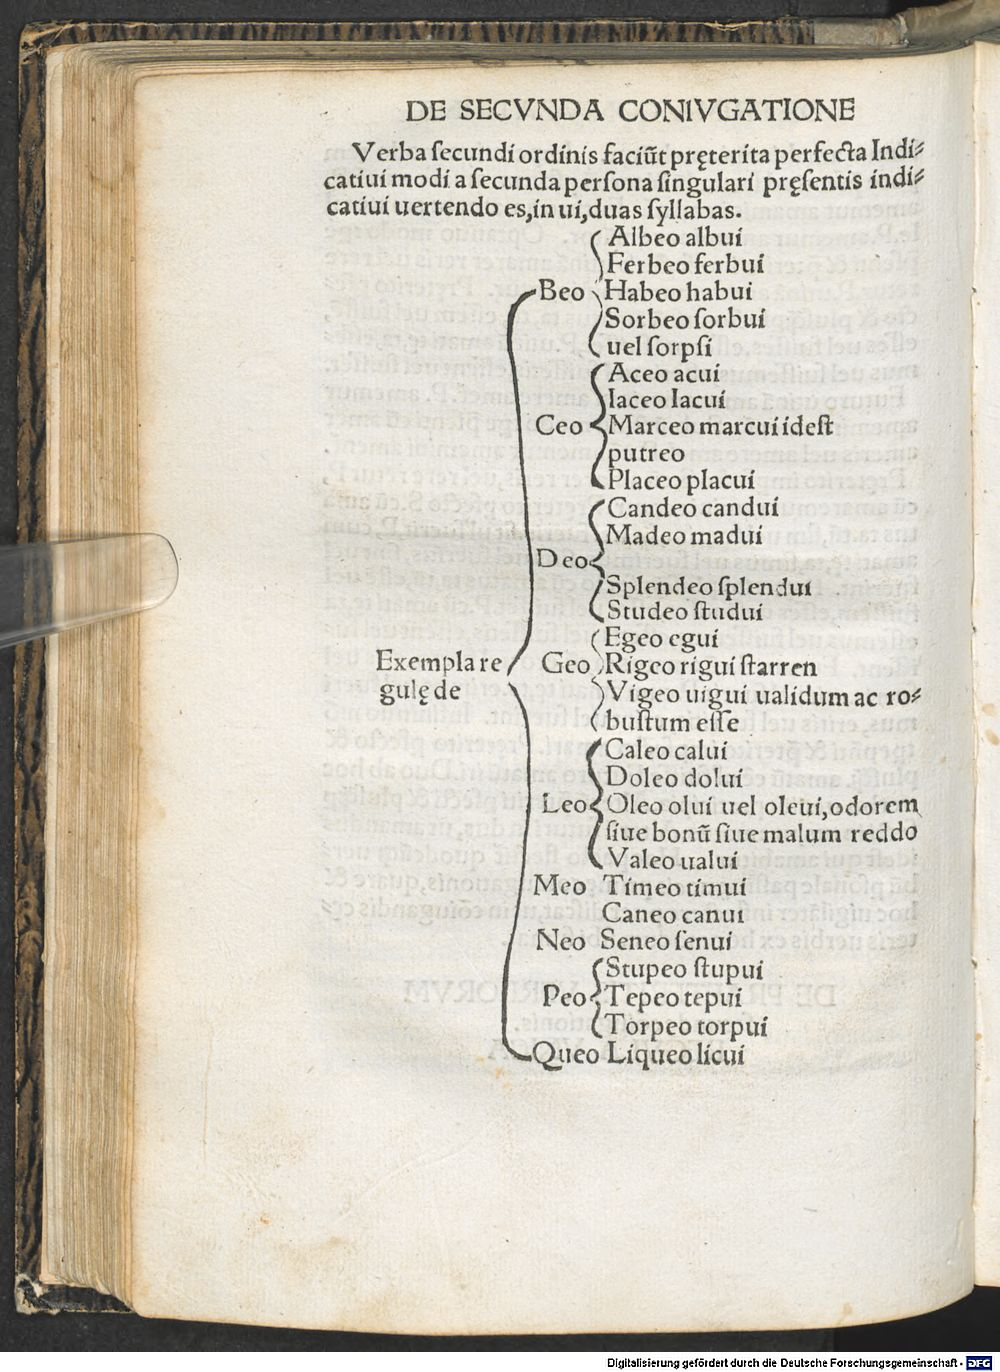 DE SECVNDA CONIVGATIONE
Verba ſecundi ordinis faciūt pręterita perfecta Indi⸗
catiui modi a ſecunda perſona ſingulari pręſentis indi⸗
catiui uertendo es, in ui, duas ſyllabas.
Albeo albui
Ferbeo ferbui
Beo Habeo habui
Sorbeo ſorbui
uel ſorpſi
Aceo acui
Iaceo Iacui
Ceo Marceo marcui ideſt
putreo
Placeo placui
Candeo candui
Madeo madui
Deo
Splendeo ſplendui
Studeo ſtudui
Egeo egui
Exempla re Geo Rigeo rigui ſtarren
gulę de Vigeo uigui ualidum ac ro⸗
buſtum eſſe
Caleo calui
Doleo dolui
Leo Oleo olui uel oleui, odorem
ſiue bonū ſiue malum reddo
Valeo ualui
Meo Timeo timui
Caneo canui
Neo Seneo ſenui
Stupeo ſtupui
Peo Tepeo tepui
Torpeo torpui
Queo Liqueo licui
Digitalisierung gefördert durch die Deutsche Forschungsgemeinschaft - DFG